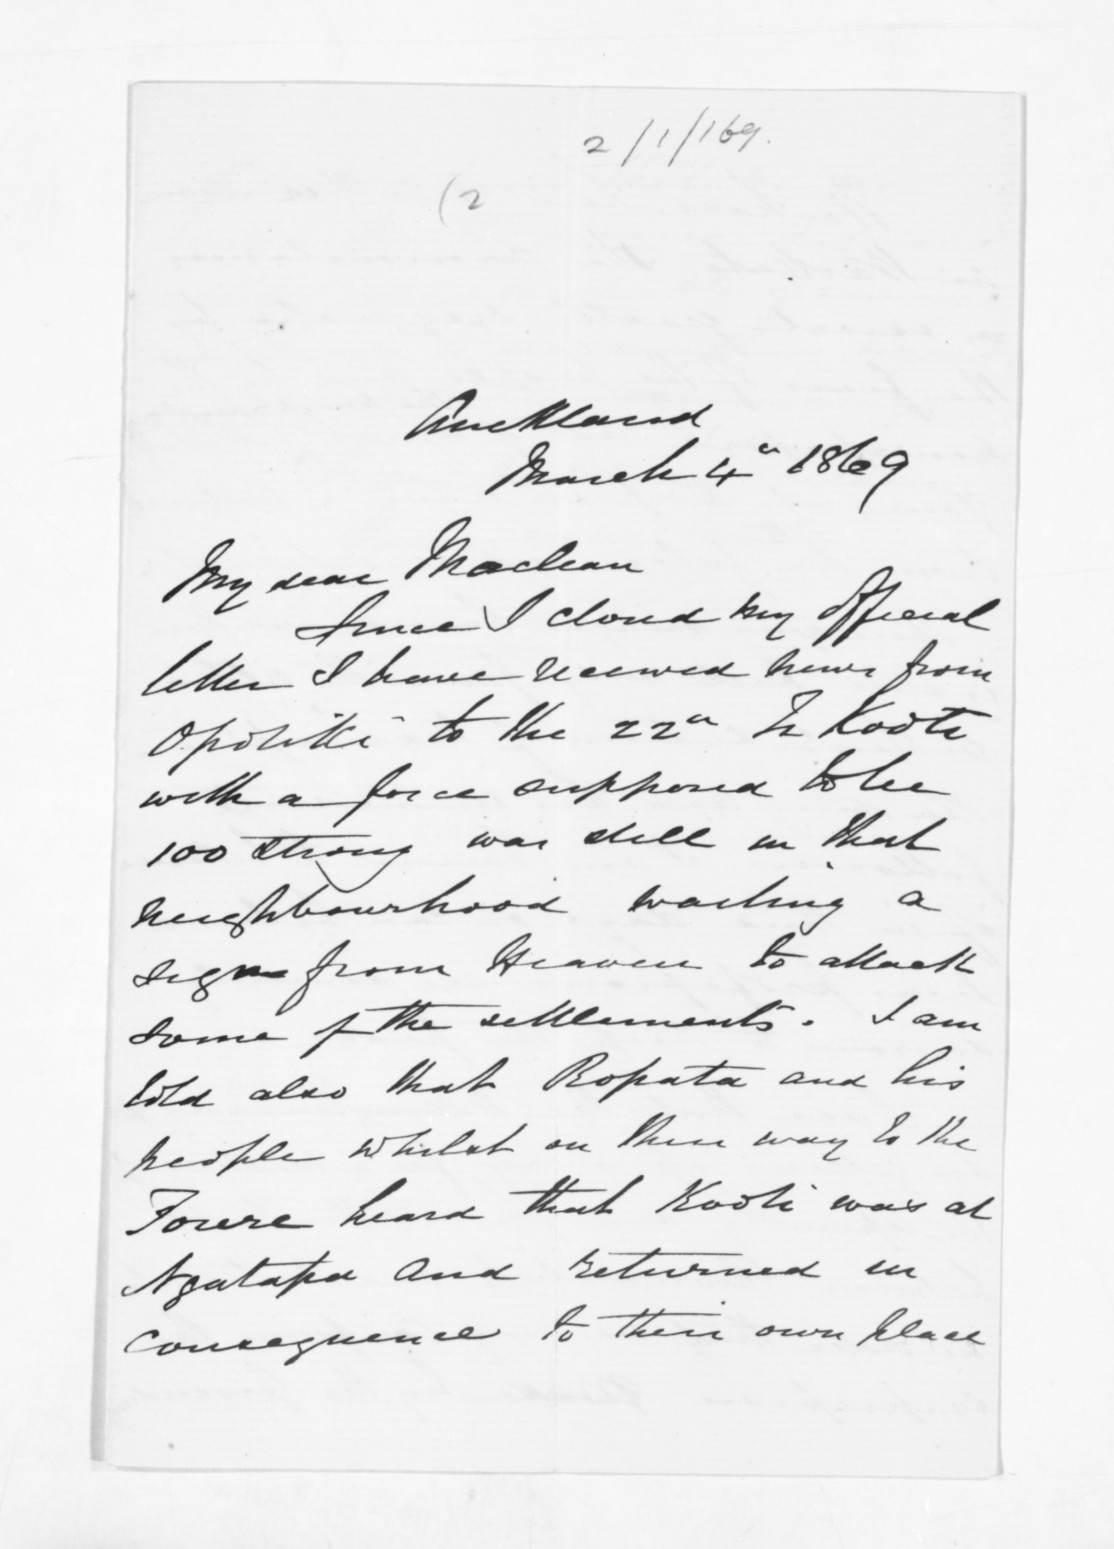 2/1/169.
(2
Auckland
March 4th 1869
My dear Maclean
Since I closed my official
letter I have received news from
Opotiki to the 22nd Te Kooti
with a force supposed to be
100 strong was still in that
neighbourhood waiting a
sign from Heaven to attack
some of the settlements. I am
told also that Ropata and his
people whilst on their way to the
Torere heard that Kooti was at
Ngatapa and returned in
consequence to their own place